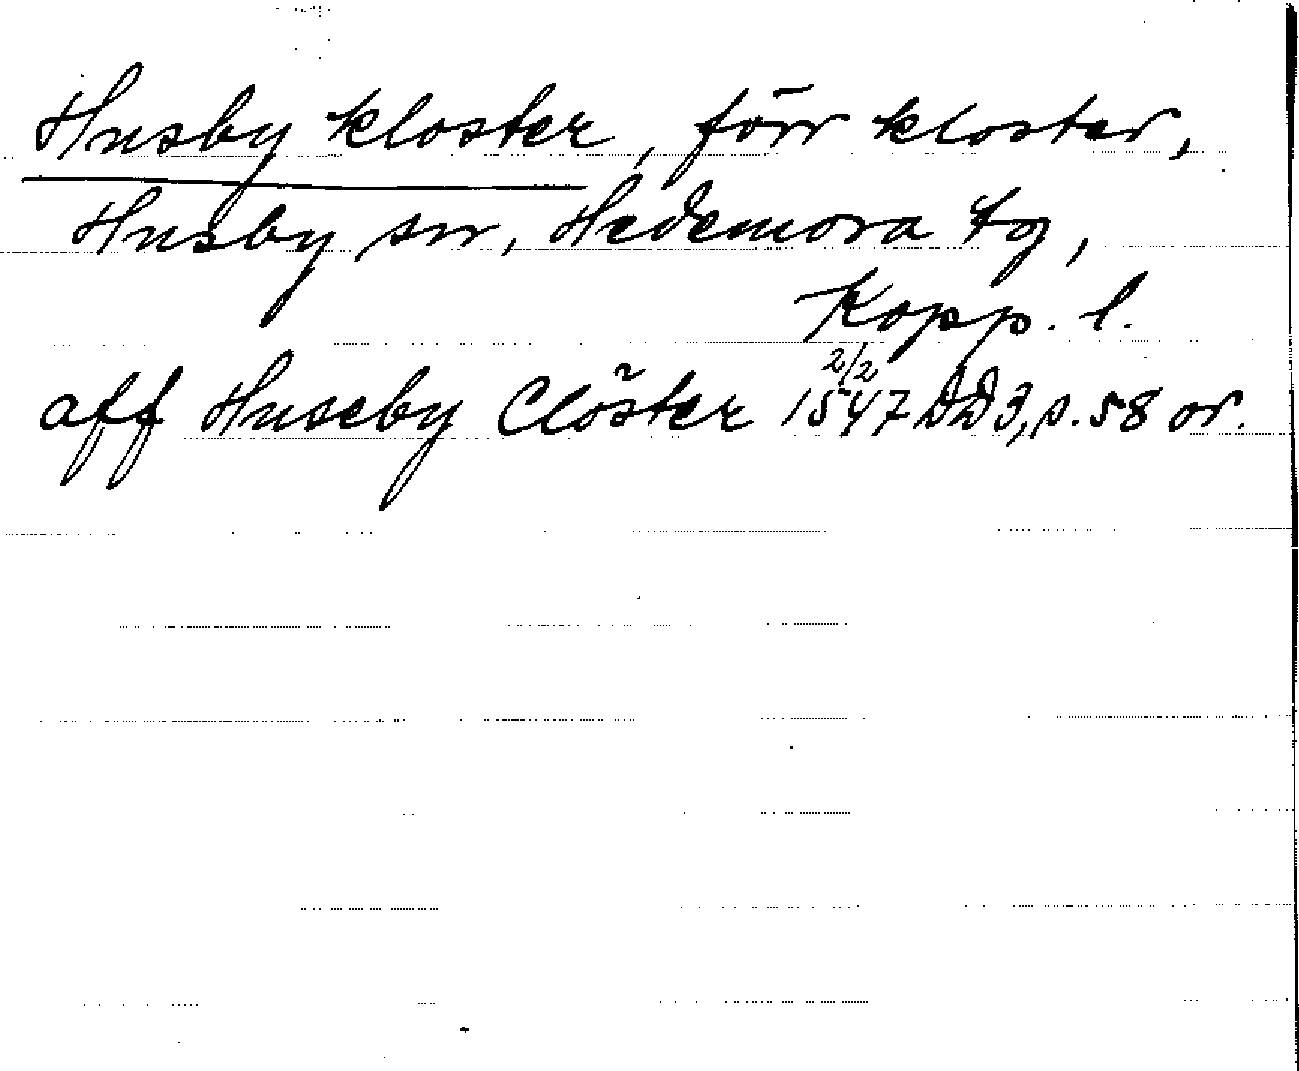 Husby kloster, förr kloster,
Husby sn, Hedemora tg,
Kopp. l.
aff Huseby Clöster 2/2 1547 DD3, s. 58 or.